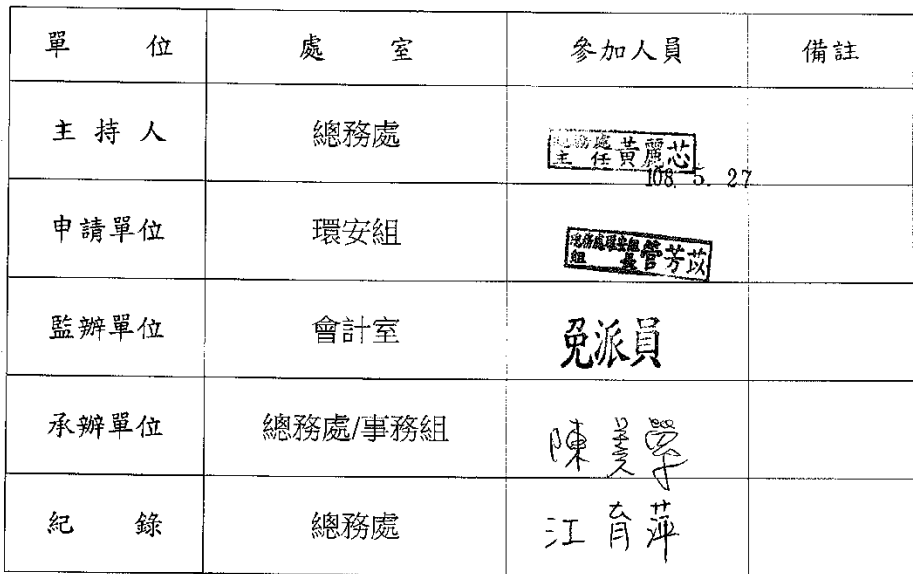 單位 處室 參加人員 備註
主持人 總務處 總務處主任黃麗芯
108. 5. 27
申請單位 環安組 總務處環安組組長管芳苡
監辦單位 會計室 免派員
承辦單位 總務處/事務組 陳美學
紀錄 總務處 江育萍